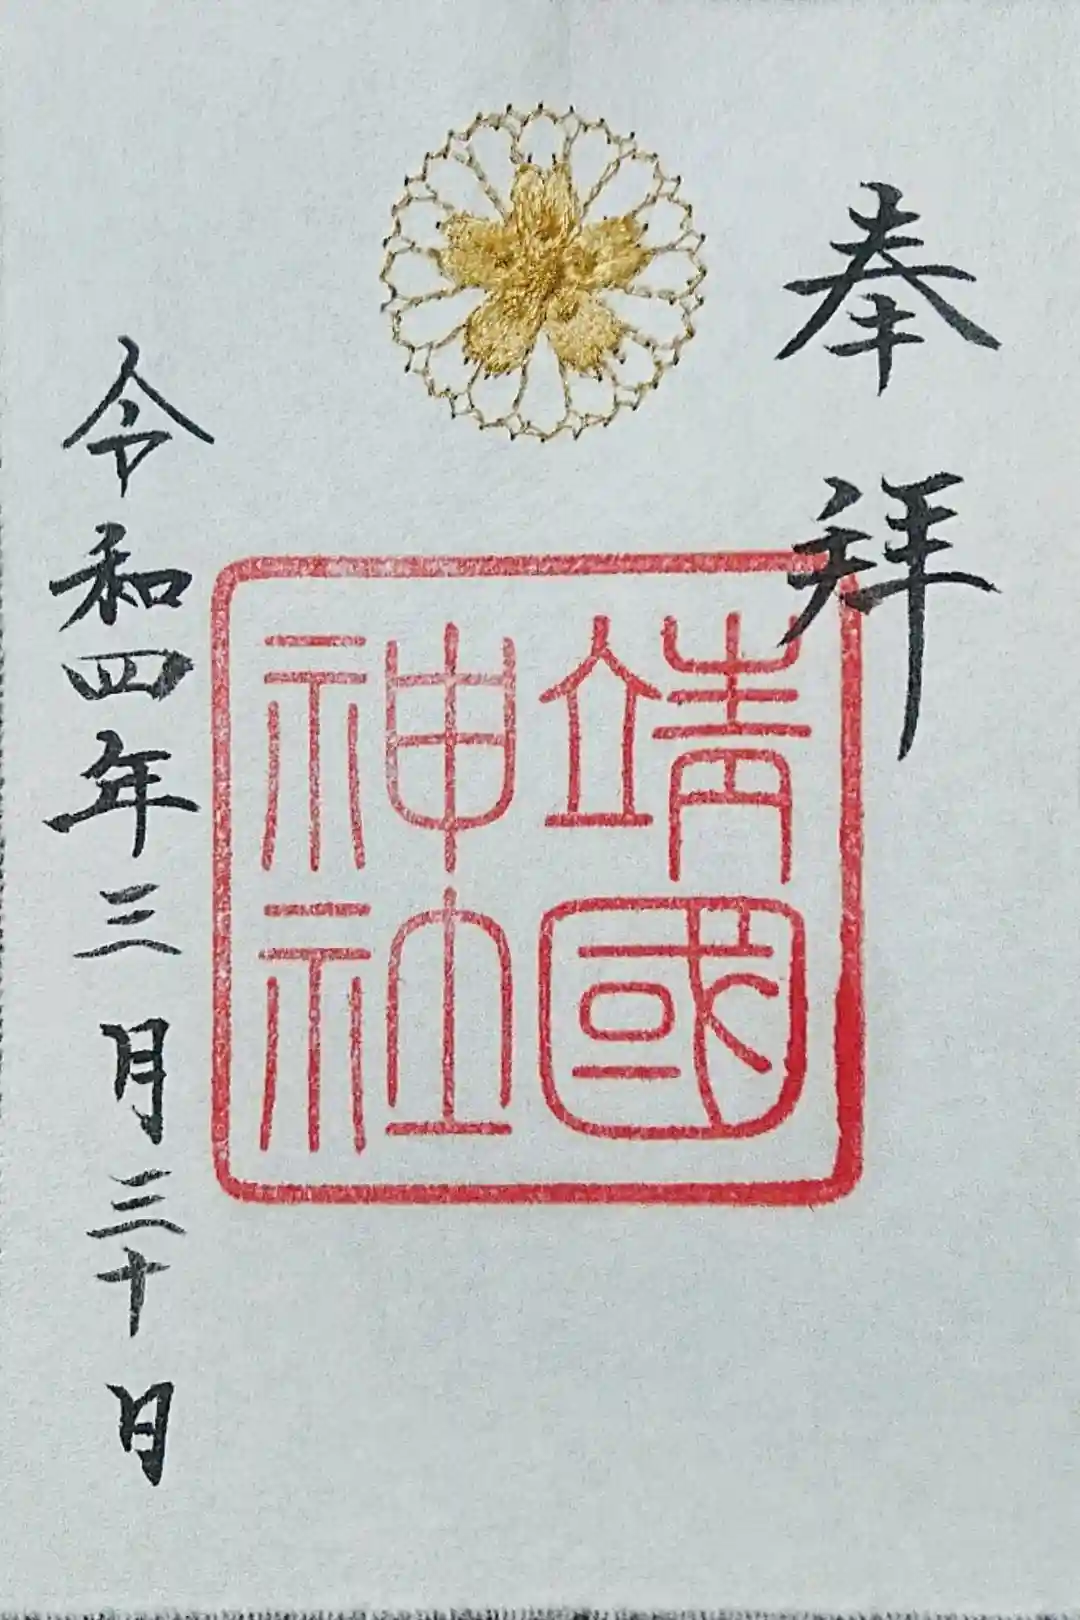 奉拝
靖國
神社
令和四年三月三十日